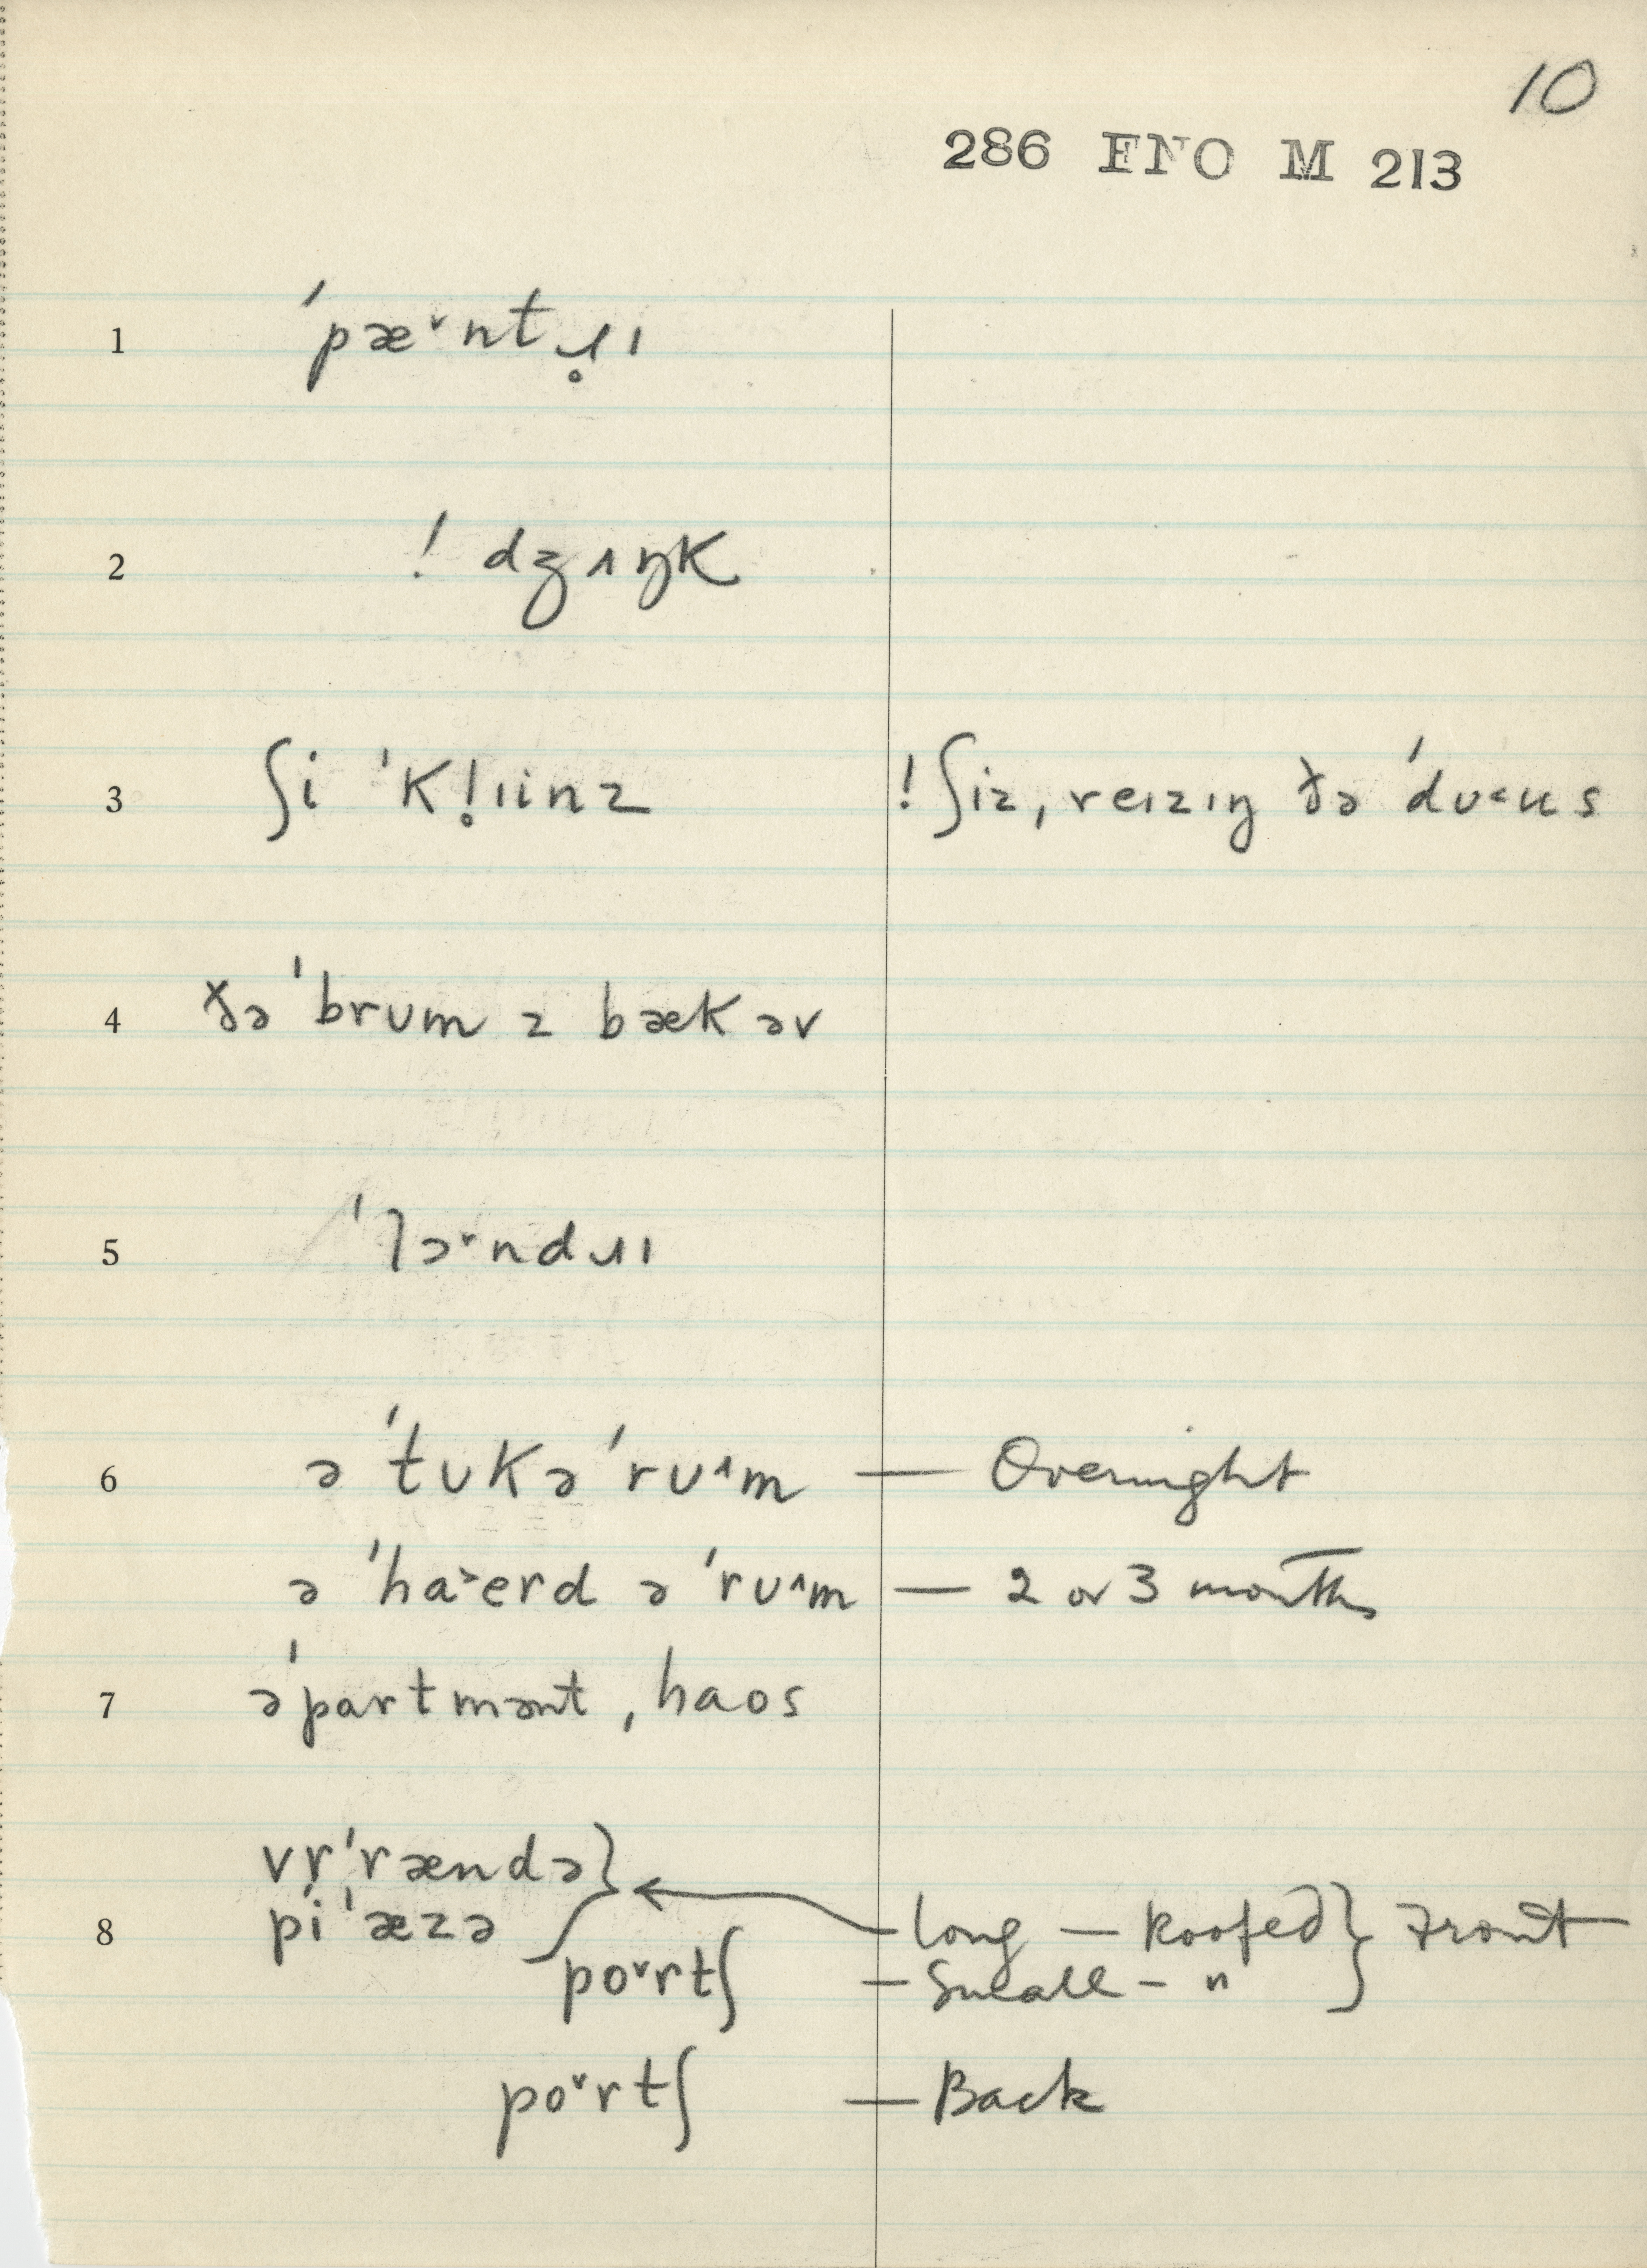 10
286 FNO M 213
1 ˈpæ˅ntɹ̥ɪ
2 ! dʒʌŋk
3 ʃi ˈkl̥ɪinz ! ʃiz, reɪzɪŋ ðə ˈdʊ˂ʉs
4 ðə ˈbrum z bæk əv
5 ˈlɔ˅ndɹɪ
6 ə ˈtʊk ə ˈrʊ˄m — Overnight
ə ˈha˃erd ə ˈrʊ˄m — 2 or 3 months
7 əˈpartmənt, haos
vr̩ˈrændə }
8 piˈæzə — long — Roofed } Front
po˅rtʃ — Small — "
po˅rtʃ — Back